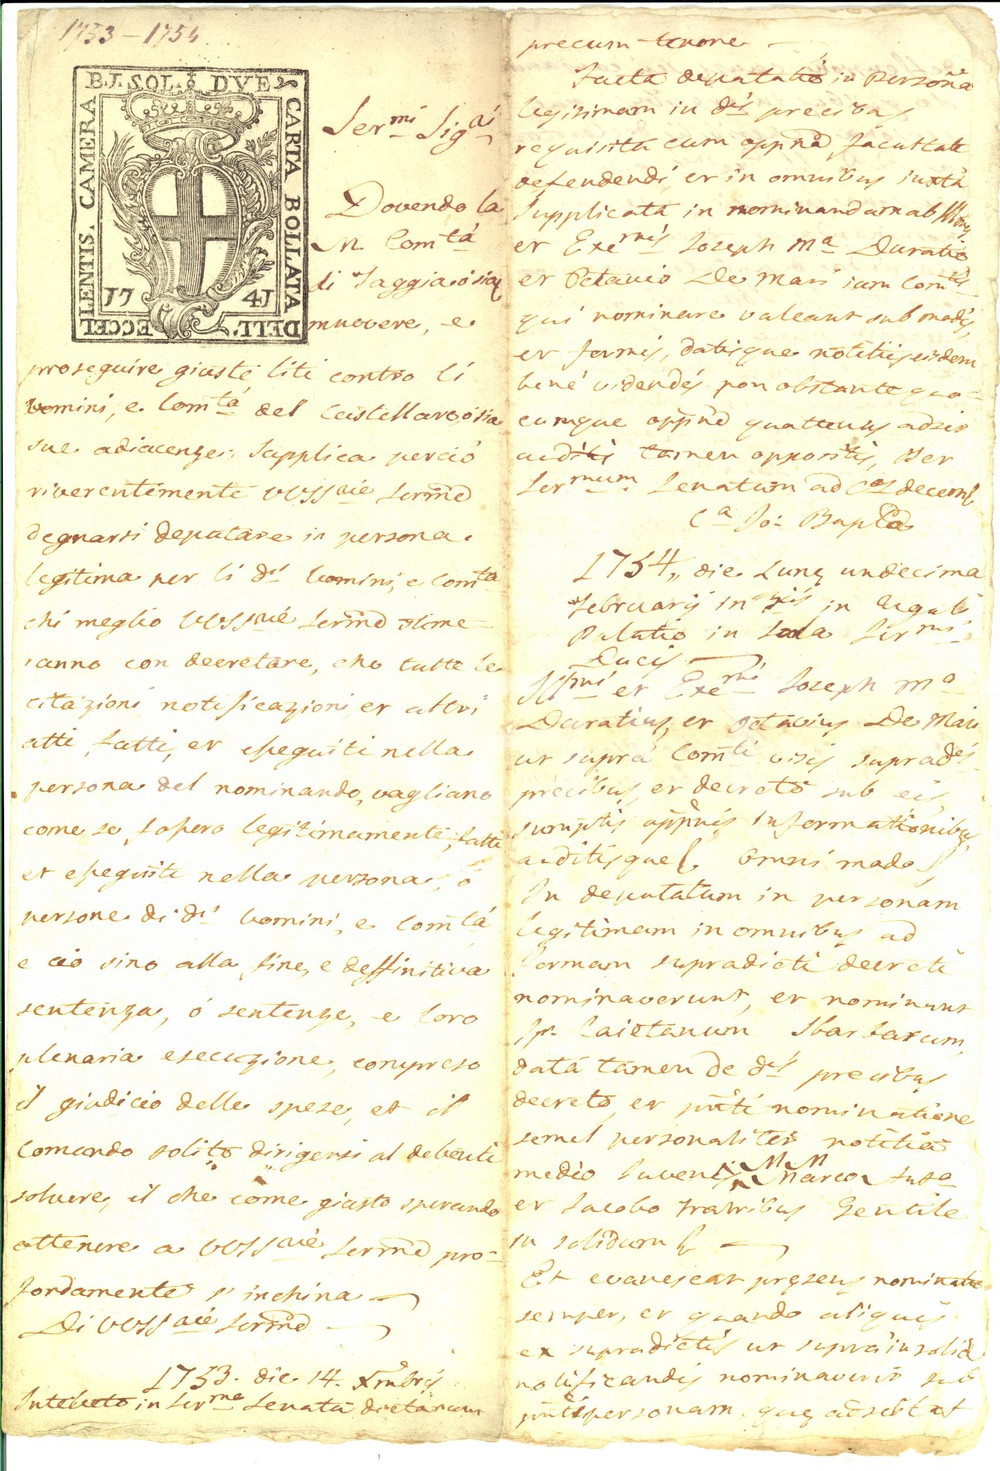 1753 - 1754
B. I. SOL. DVE
CARTA BOLLATA
DELL'
ECCEL
LENTIS. CAMERA
17 41
Ser.mi Sig.ri
Dovendo la
M Com.tà
di Taggia ò sia
muovere, e
proseguire giuste liti contro li
Uomini, e Com.tà del Castellaro, ò sia
sue adiacenze; supplica perciò
riverentemente VVSS.rie Serme
degnarsi deputare in persona
legitima per li d.i Uomini, e Com.tà
chi meglio VVSS.rie Serme stime-
ranno con decretare, che tutte le
citazioni notificazioni et altri
atti, fatti, et eseguiti nella
persona del nominando, vagliano
come se fossero legitimamente, fatti
et eseguiti nella persona, ò
persone di d.i Uomini, e Com.tà
e ciò sino alla fine, e deffinitiva
sentenza, ò sentenze, e loro
plenaria esecuzione, compreso
il giudicio delle spese, et il
comando solito dirigersi al debente
solvere, il che come giusto sperando
ottenere a VVSS.rie Serme pro-
fondamente s'inchina
Di VVSS.rie Serme
1753. die 14. Xmbris
in Ser.mo Senatu
precum tenore
Facta deputatio in Persona
legitimam in d.is precibus
requisita cum facultate
defendendi, et in omnibus iuxta
supplicata in nominandam ab
et Exc.mis Joseph M.a Duratio
et Octavio De Mari iam Com.tis
qui nominare valeant sub modis,
et formis, datisque notitiis eisdem
bene videndis non obstante quo-
cumque quatenus adsit
auditis tamen oppositis, Per
Ser.mum Senatum ad C.os
C.a Jo: Bapta
1754 die Lunę undecima
Februarij in in Regali
Palatio in Sala Ser.mi
Ducis
Ill.mi et Exc.mi Joseph M.a
Duratius, et Octavius De Mari
ut supra Com.ti visis suprad.is
precibus, et decreto sub eis
sumptis informationibus
auditisque &. Omni modo &
In deputatum in personam
legitimam in omnibus ad
formam supradicti decreti
nominaverunt, et nominant
Sp. Caietanum Sbarbarum,
data tamen de d.is precibus
decreto, et pnti nominatione
semel personaliter notitia
medio Marco
et Jacobo Fratribus Gentile
in solidum &
Et evanescat pręsens nominatio
semper, et quando aliquis
ex supradictis ut supra in solid
notificandis nominaverit sub
personam, quę